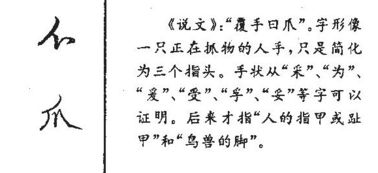 爪
《说文》：“覆手曰爪”。字形像
一只正在抓物的人手，只是简化
为三个指头。手状从“采”、“为”、
“爰”、“受”、“孚”、“妥”等字可以
证明。后来才指“人的指甲或趾
甲”和“鸟兽的脚”。